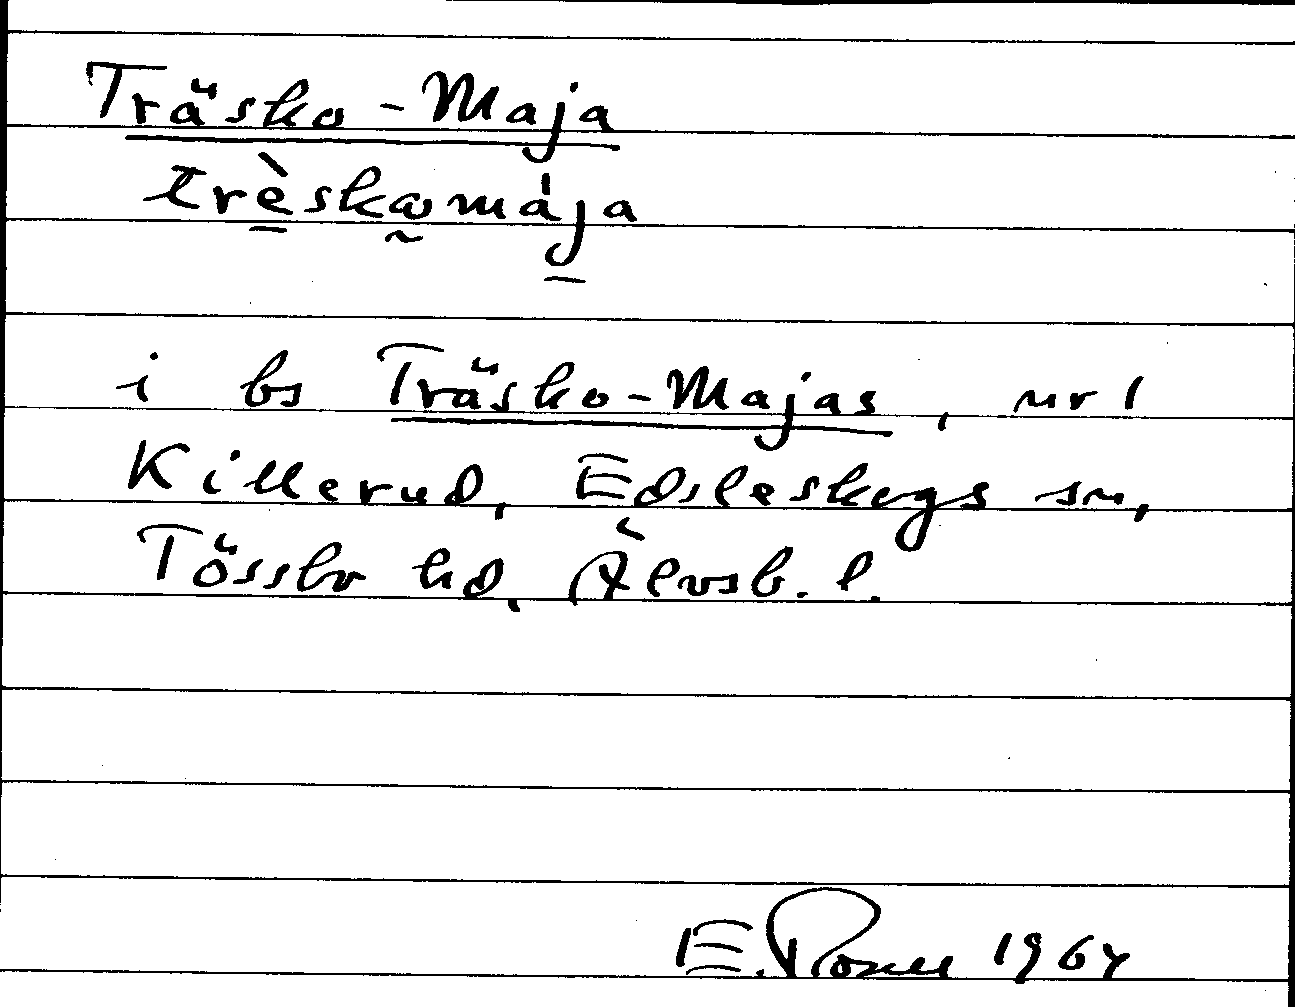 Träsko-Maja
trèskωmája
i bs Träsko-Majas, nr 1
Killerud, Edsleskogs sn,
Tössbo hd, Älvsb. l.
E. 1964